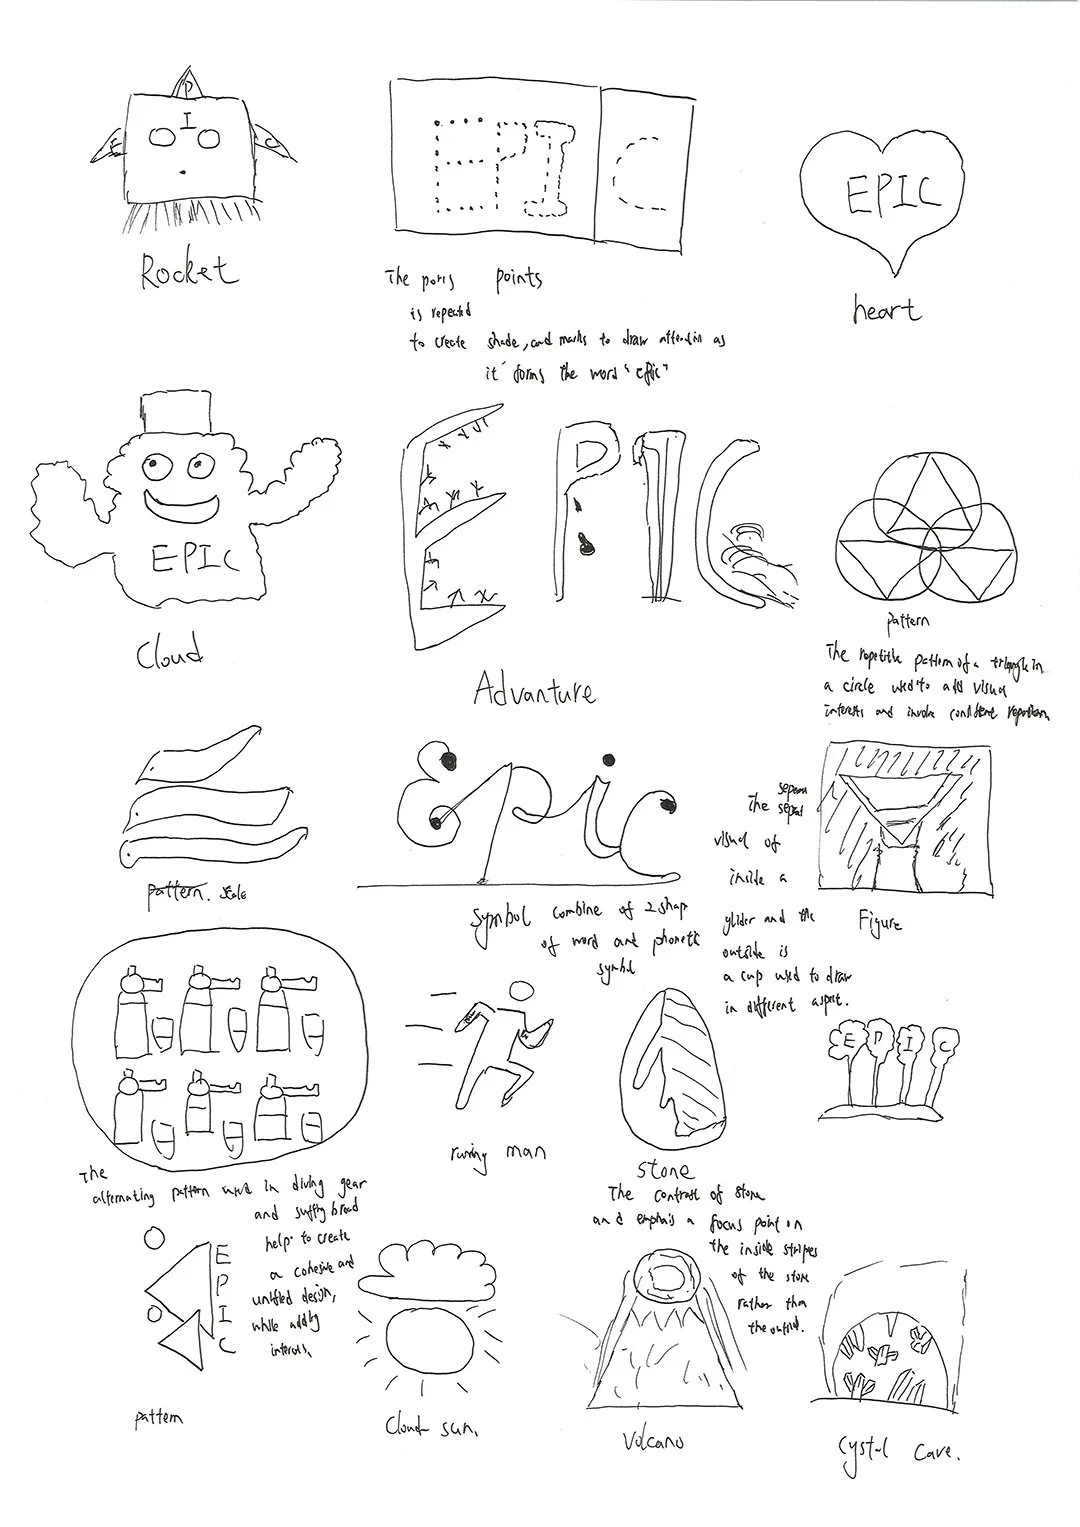 P
I
E
C
Rocket
EPIC
The points
is repeated
to create shade, and marks to draw attention as
it forms the word "epic"
EPIC
heart
EPIC
Cloud
EPIC
Advanture
pattern
The pattern of a triangle in
a circle used to add visual
interests and invoke
pattern. scale
Epic
Symbol combine of 2 shap
of word and phonetic
symbol
The
visual of
inside a
glider and the
outside is
a cup used to draw
in different aspect.
Figure
The
alternating pattern used in diving gear
and
help to create
a cohesive and
unified design,
while adding
running man
stone
The contrast of stone
and emphais a focus point on
the inside stripes
of the stone
rather than
the
EPIC
E
P
I
C
pattern
Cloud sun.
Volcano
Cystal cave.